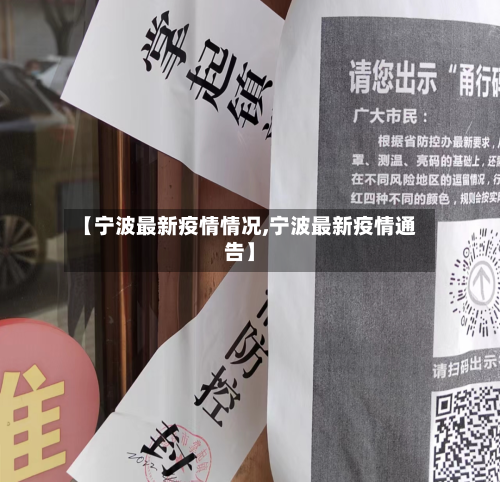 掌起镇
请您出示“甬行码
广大市民：
根据省防控办最新要求，
罩、测温、亮码的基础上，还
在不同风险地区的逗留情况，行
红四种不同的颜色，规则会按实
【宁波最新疫情情况,宁波最新疫情通
告】
情防控
封
请扫码出示
准
2022